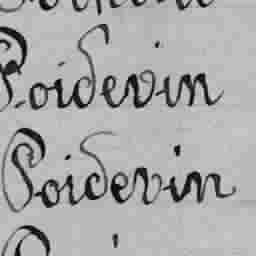 Poidevin
Poidevin